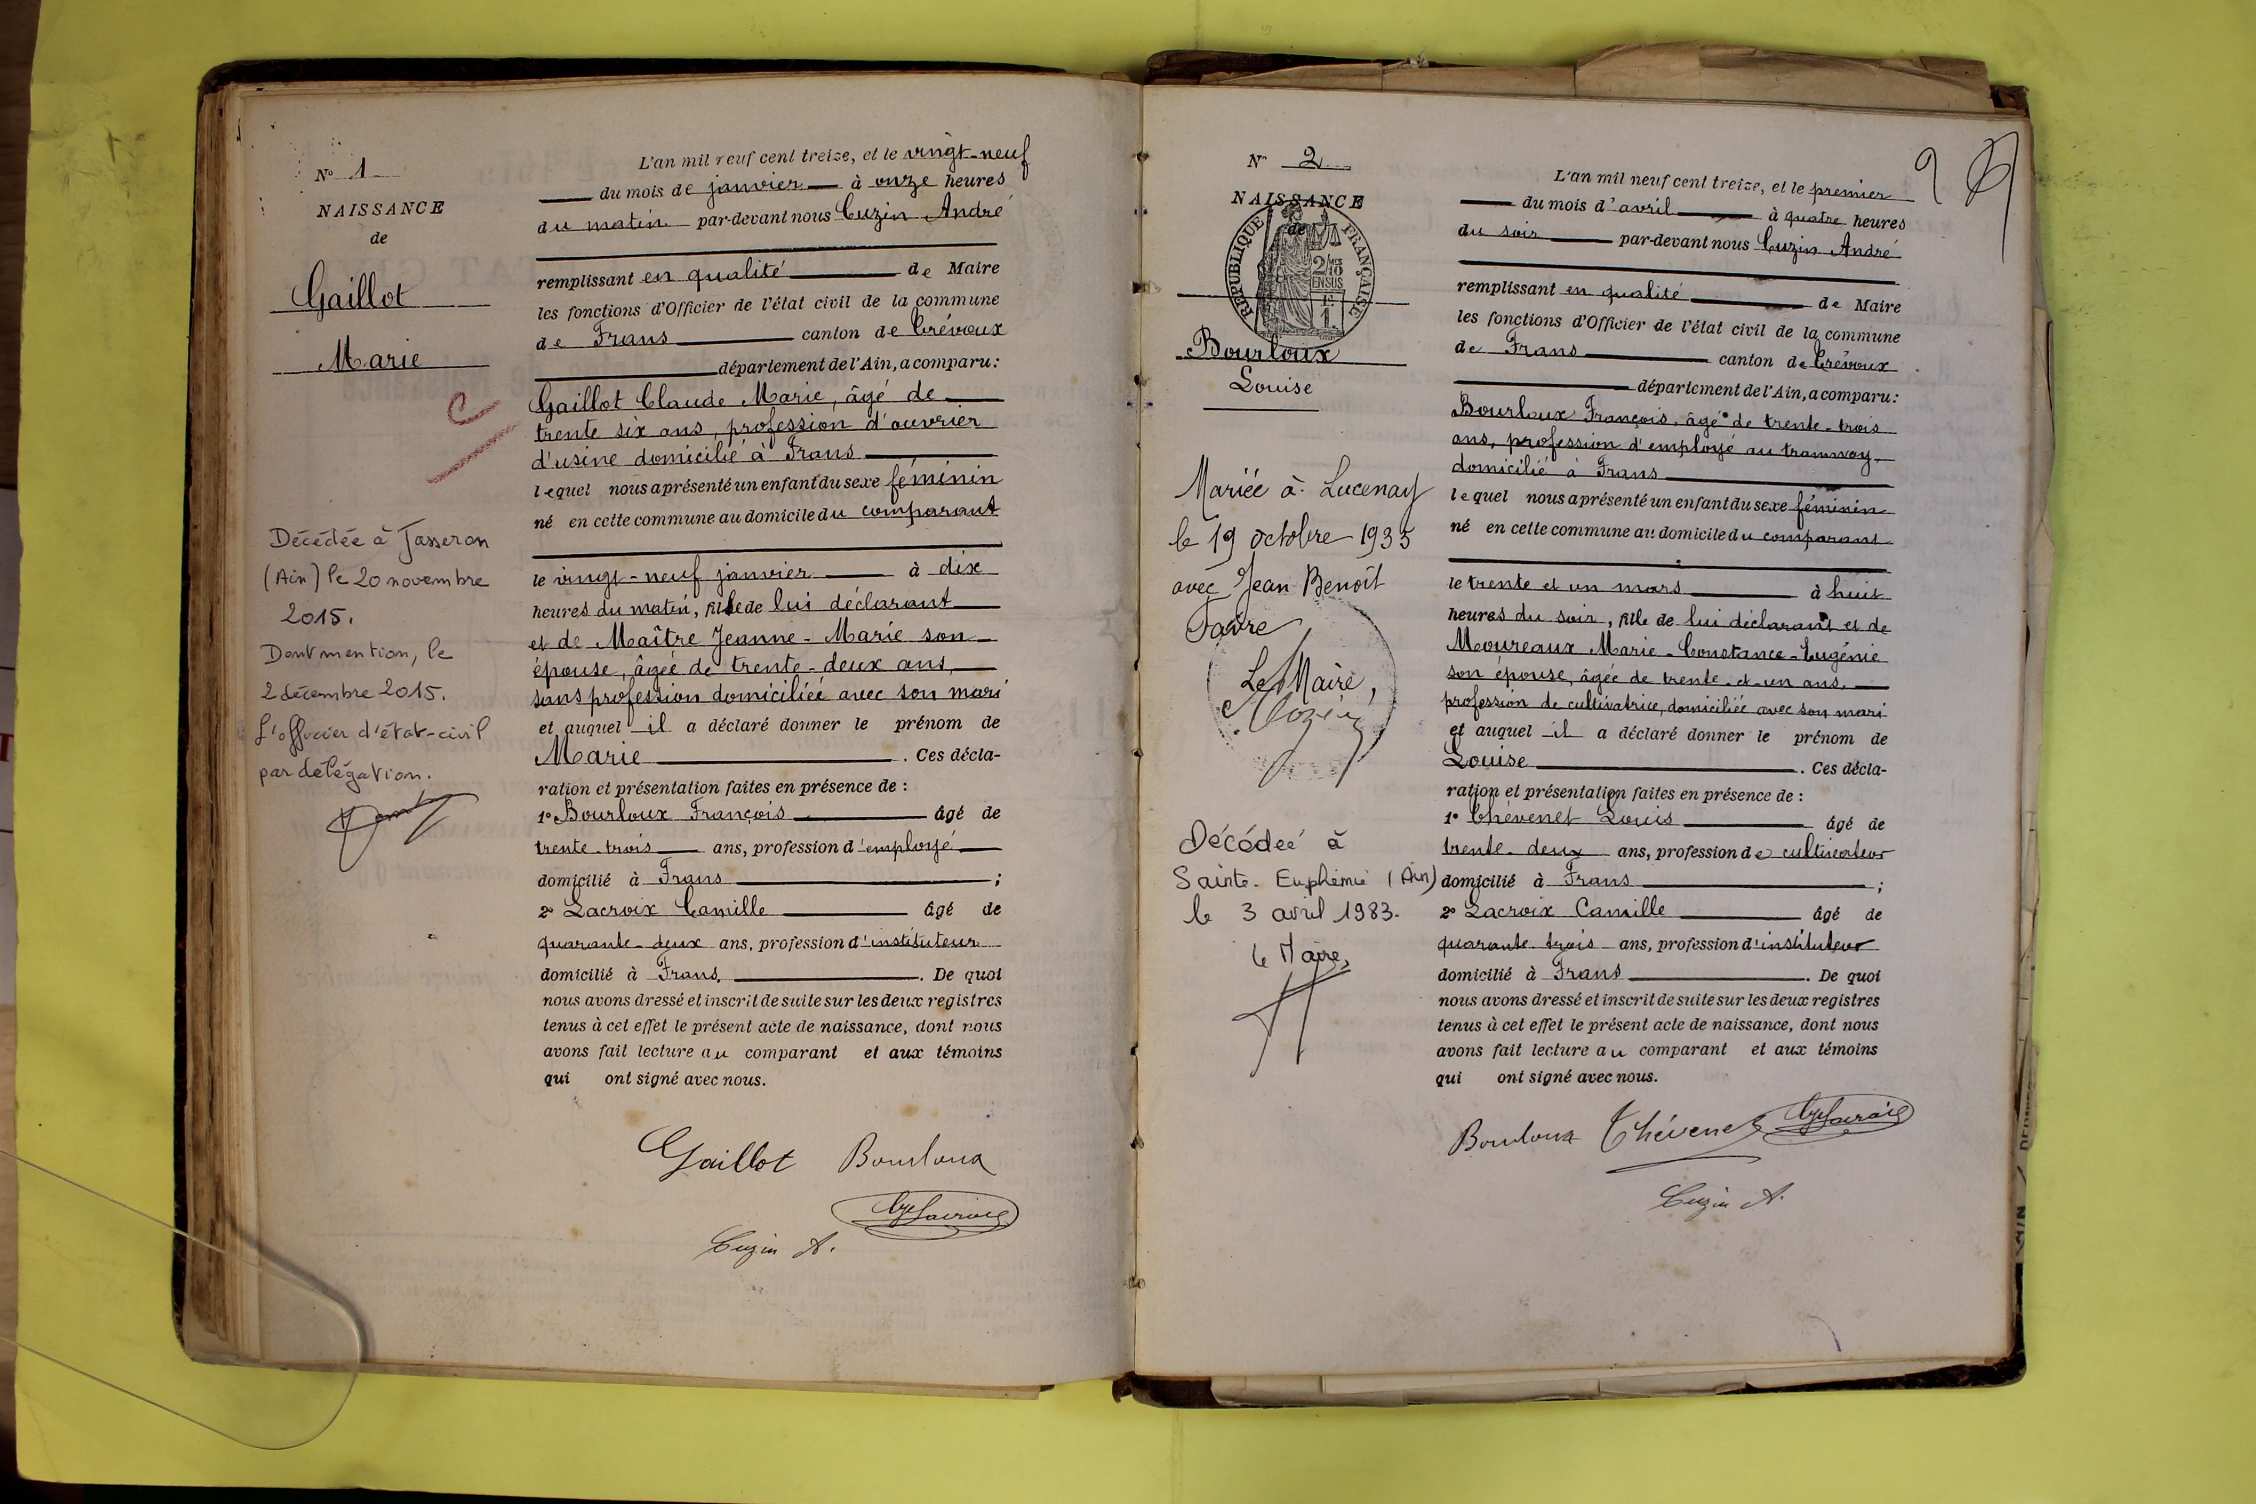 N° 1
NAISSANCE
de
Gaillot
Marie
Décédée à Jasseron
(Ain) le 20 novembre
2015.
Dont mention, le
2 décembre 2015.
L'officier d'état-civil
par délégation.
L'an mil neuf cent treize, et le vingt-neuf
du mois de janvier à onze heures
du matin par-devant nous Cuzin André
remplissant en qualité de Maire
les fonctions d'Officier de l'état civil de la commune
de Frans canton de Trévoux
département de l'Ain, a comparu:
Gaillot Claude Marie, âgé de
trente six ans, profession d'ouvrier
d'usine domicilié à Frans
lequel nous a présenté un enfant du sexe féminin
né en cette commune au domicile du comparant
le vingt-neuf janvier à dix
heures du matin, fille de lui déclarant
et de Maître Jeanne-Marie son
épouse, âgée de trente-deux ans,
sans profession domiciliée avec son mari
et auquel il a déclaré donner le prénom de
Marie. Ces décla-
ration et présentation faites en présence de :
1° Bourloux François âgé de
trente-trois ans, profession d'employé
domicilié à Frans ;
2° Lacroix Camille âgé de
quarante-deux ans, profession d'instituteur
domicilié à Frans. De quoi
nous avons dressé et inscrit de suite sur les deux registres
tenus à cet effet le présent acte de naissance, dont nous
avons fait lecture au comparant et aux témoins
qui ont signé avec nous.
Gaillot Bourloux
Lacroix
Cuzin A.
2
N° 2
NAISSANCE
de
RÉPUBLIQUE FRANÇAISE
2/10
EN SUS
Bourloux
Louise
Mariée à Lucenay
le 19 octobre 1935
avec Jean Benoît
Favre
Le Maire,
Décédée à
Sainte-Euphémie (Ain)
le 3 avril 1983.
Le Maire,
L'an mil neuf cent treize, et le premier
du mois d'avril à quatre heures
du soir par-devant nous Cuzin André
remplissant en qualité de Maire
les fonctions d'Officier de l'état civil de la commune
de Frans canton de Trévoux
département de l'Ain, a comparu:
Bourloux François, âgé de trente-trois
ans, profession d'employé au tramway
domicilié à Frans
lequel nous a présenté un enfant du sexe féminin
né en cette commune au domicile du comparant
le trente et un mars à huit
heures du soir, fille de lui déclarant et de
Moureaux Marie-Constance-Eugénie
son épouse, âgée de trente-et-un ans,
profession de cultivatrice, domiciliée avec son mari
et auquel il a déclaré donner le prénom de
Louise. Ces décla-
ration et présentation faites en présence de :
1° Thévenet Louis âgé de
trente-deux ans, profession de cultivateur
domicilié à Frans ;
2° Lacroix Camille âgé de
quarante trois ans, profession d'instituteur
domicilié à Frans. De quoi
nous avons dressé et inscrit de suite sur les deux registres
tenus à cet effet le présent acte de naissance, dont nous
avons fait lecture au comparant et aux témoins
qui ont signé avec nous.
Bourloux Thévenet Lacroix
Cuzin A.